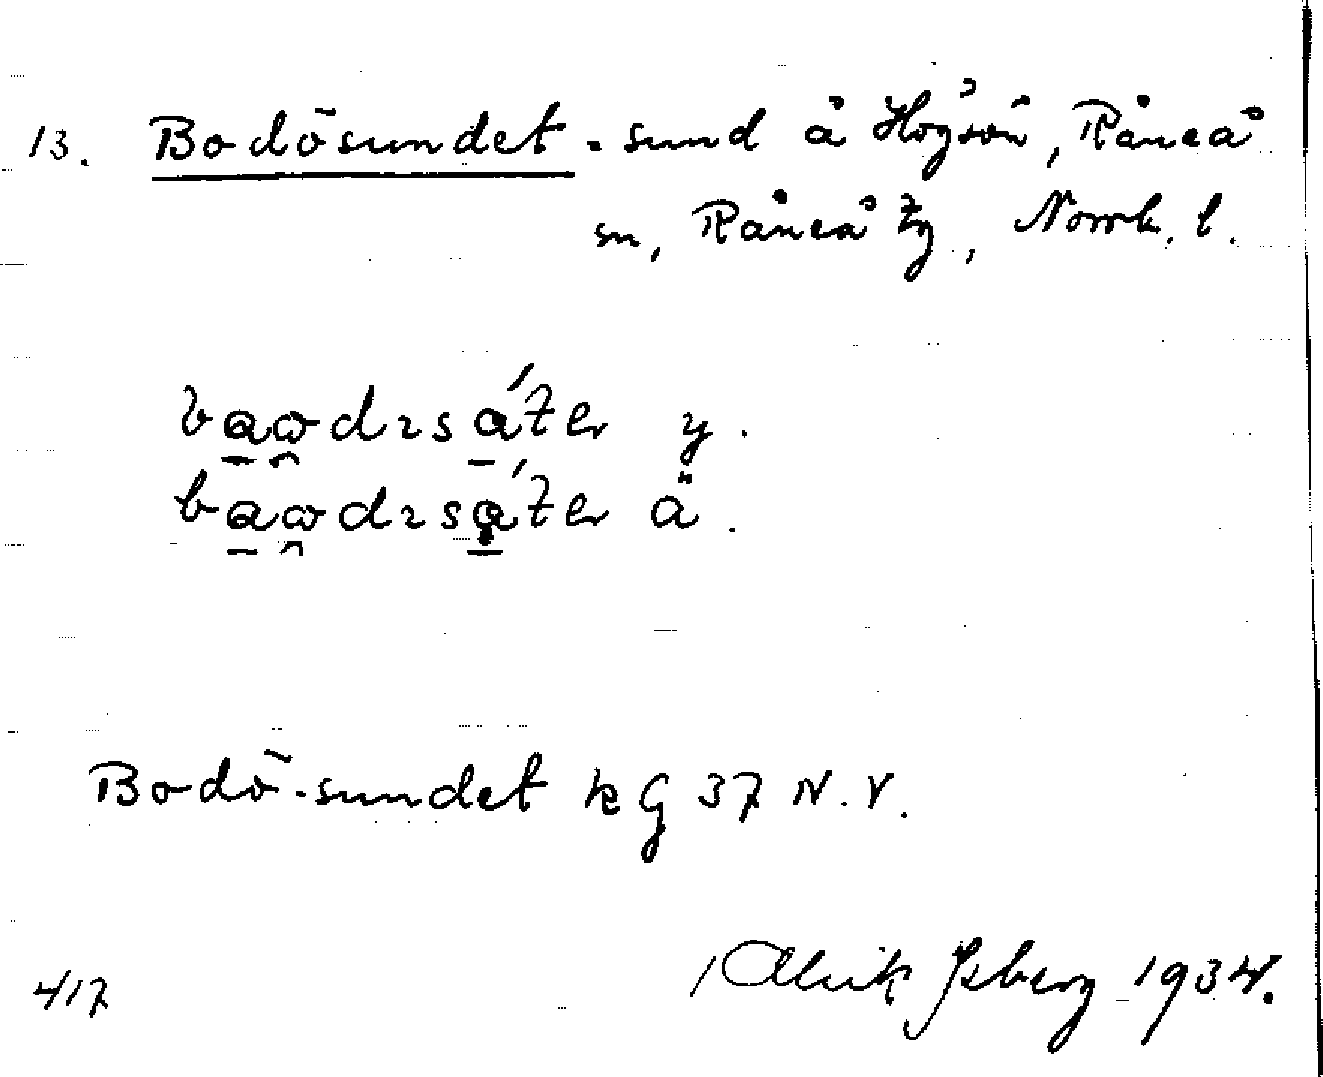 13. Bodösundet - sund å Högsön, Råneå
sn, Råneå tg, Norrb. l.
baωdɪsáter y.
baωdɪsáter ä.
Bodö-sundet kg 37 N.V.
Ulrik Isberg 1934.
417